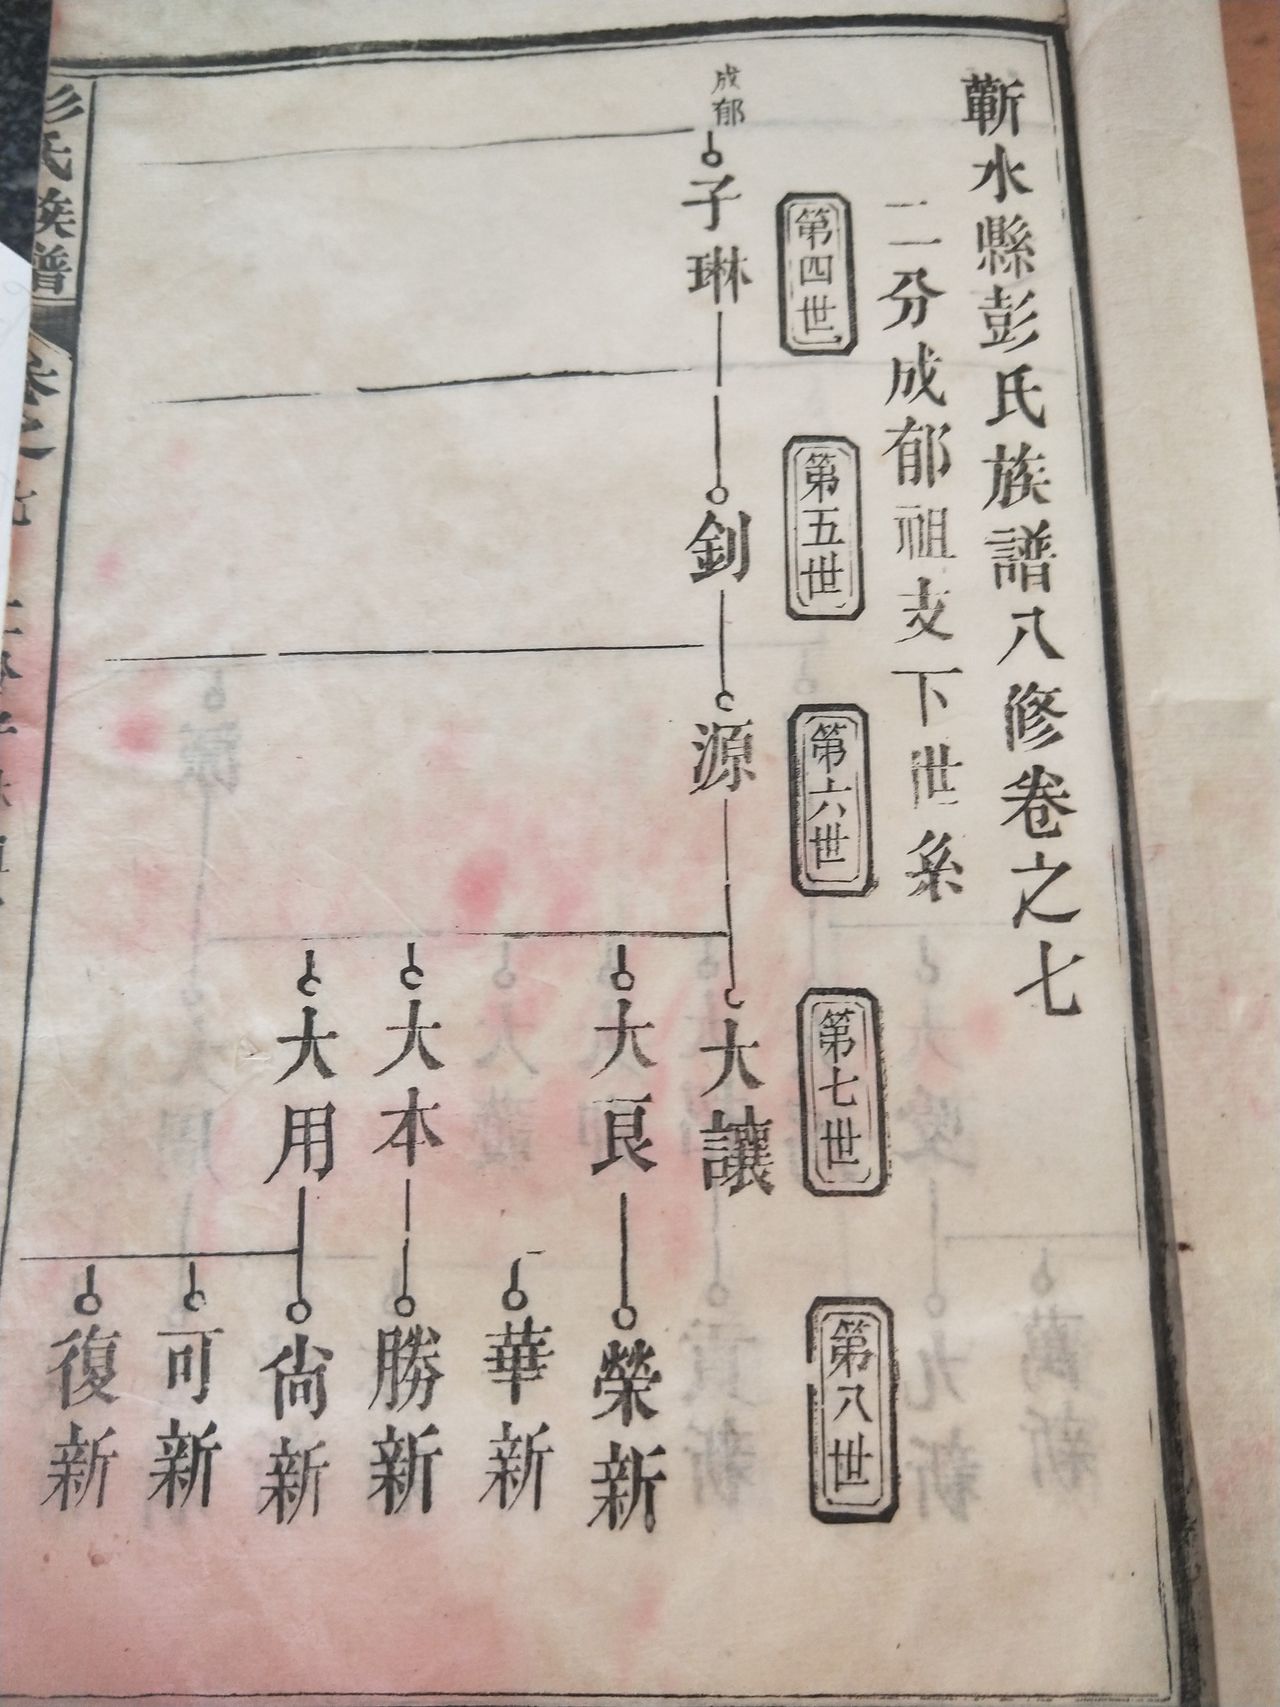 蘄水縣彭氏族譜八修卷之七
二分成郁祖支下世系
第四世
第五世
第六世
第七世
第八世
成郁
子琳
釗
源
大讓
大良
榮新
華新
大本
勝新
大用
尙新
可新
復新
彭氏族譜
卷之七